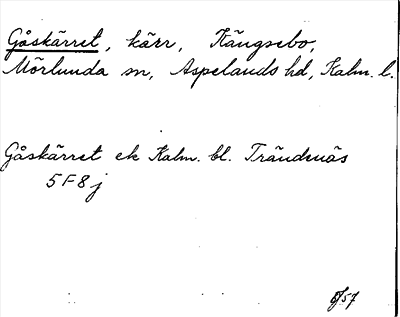 Gåskärret, kärr, Kängsebo,
Mörlunda sn, Aspelands hd, Kalm. l.
Gåskärret ek Kalm. bl. Trändenäs
5F8j
8/57